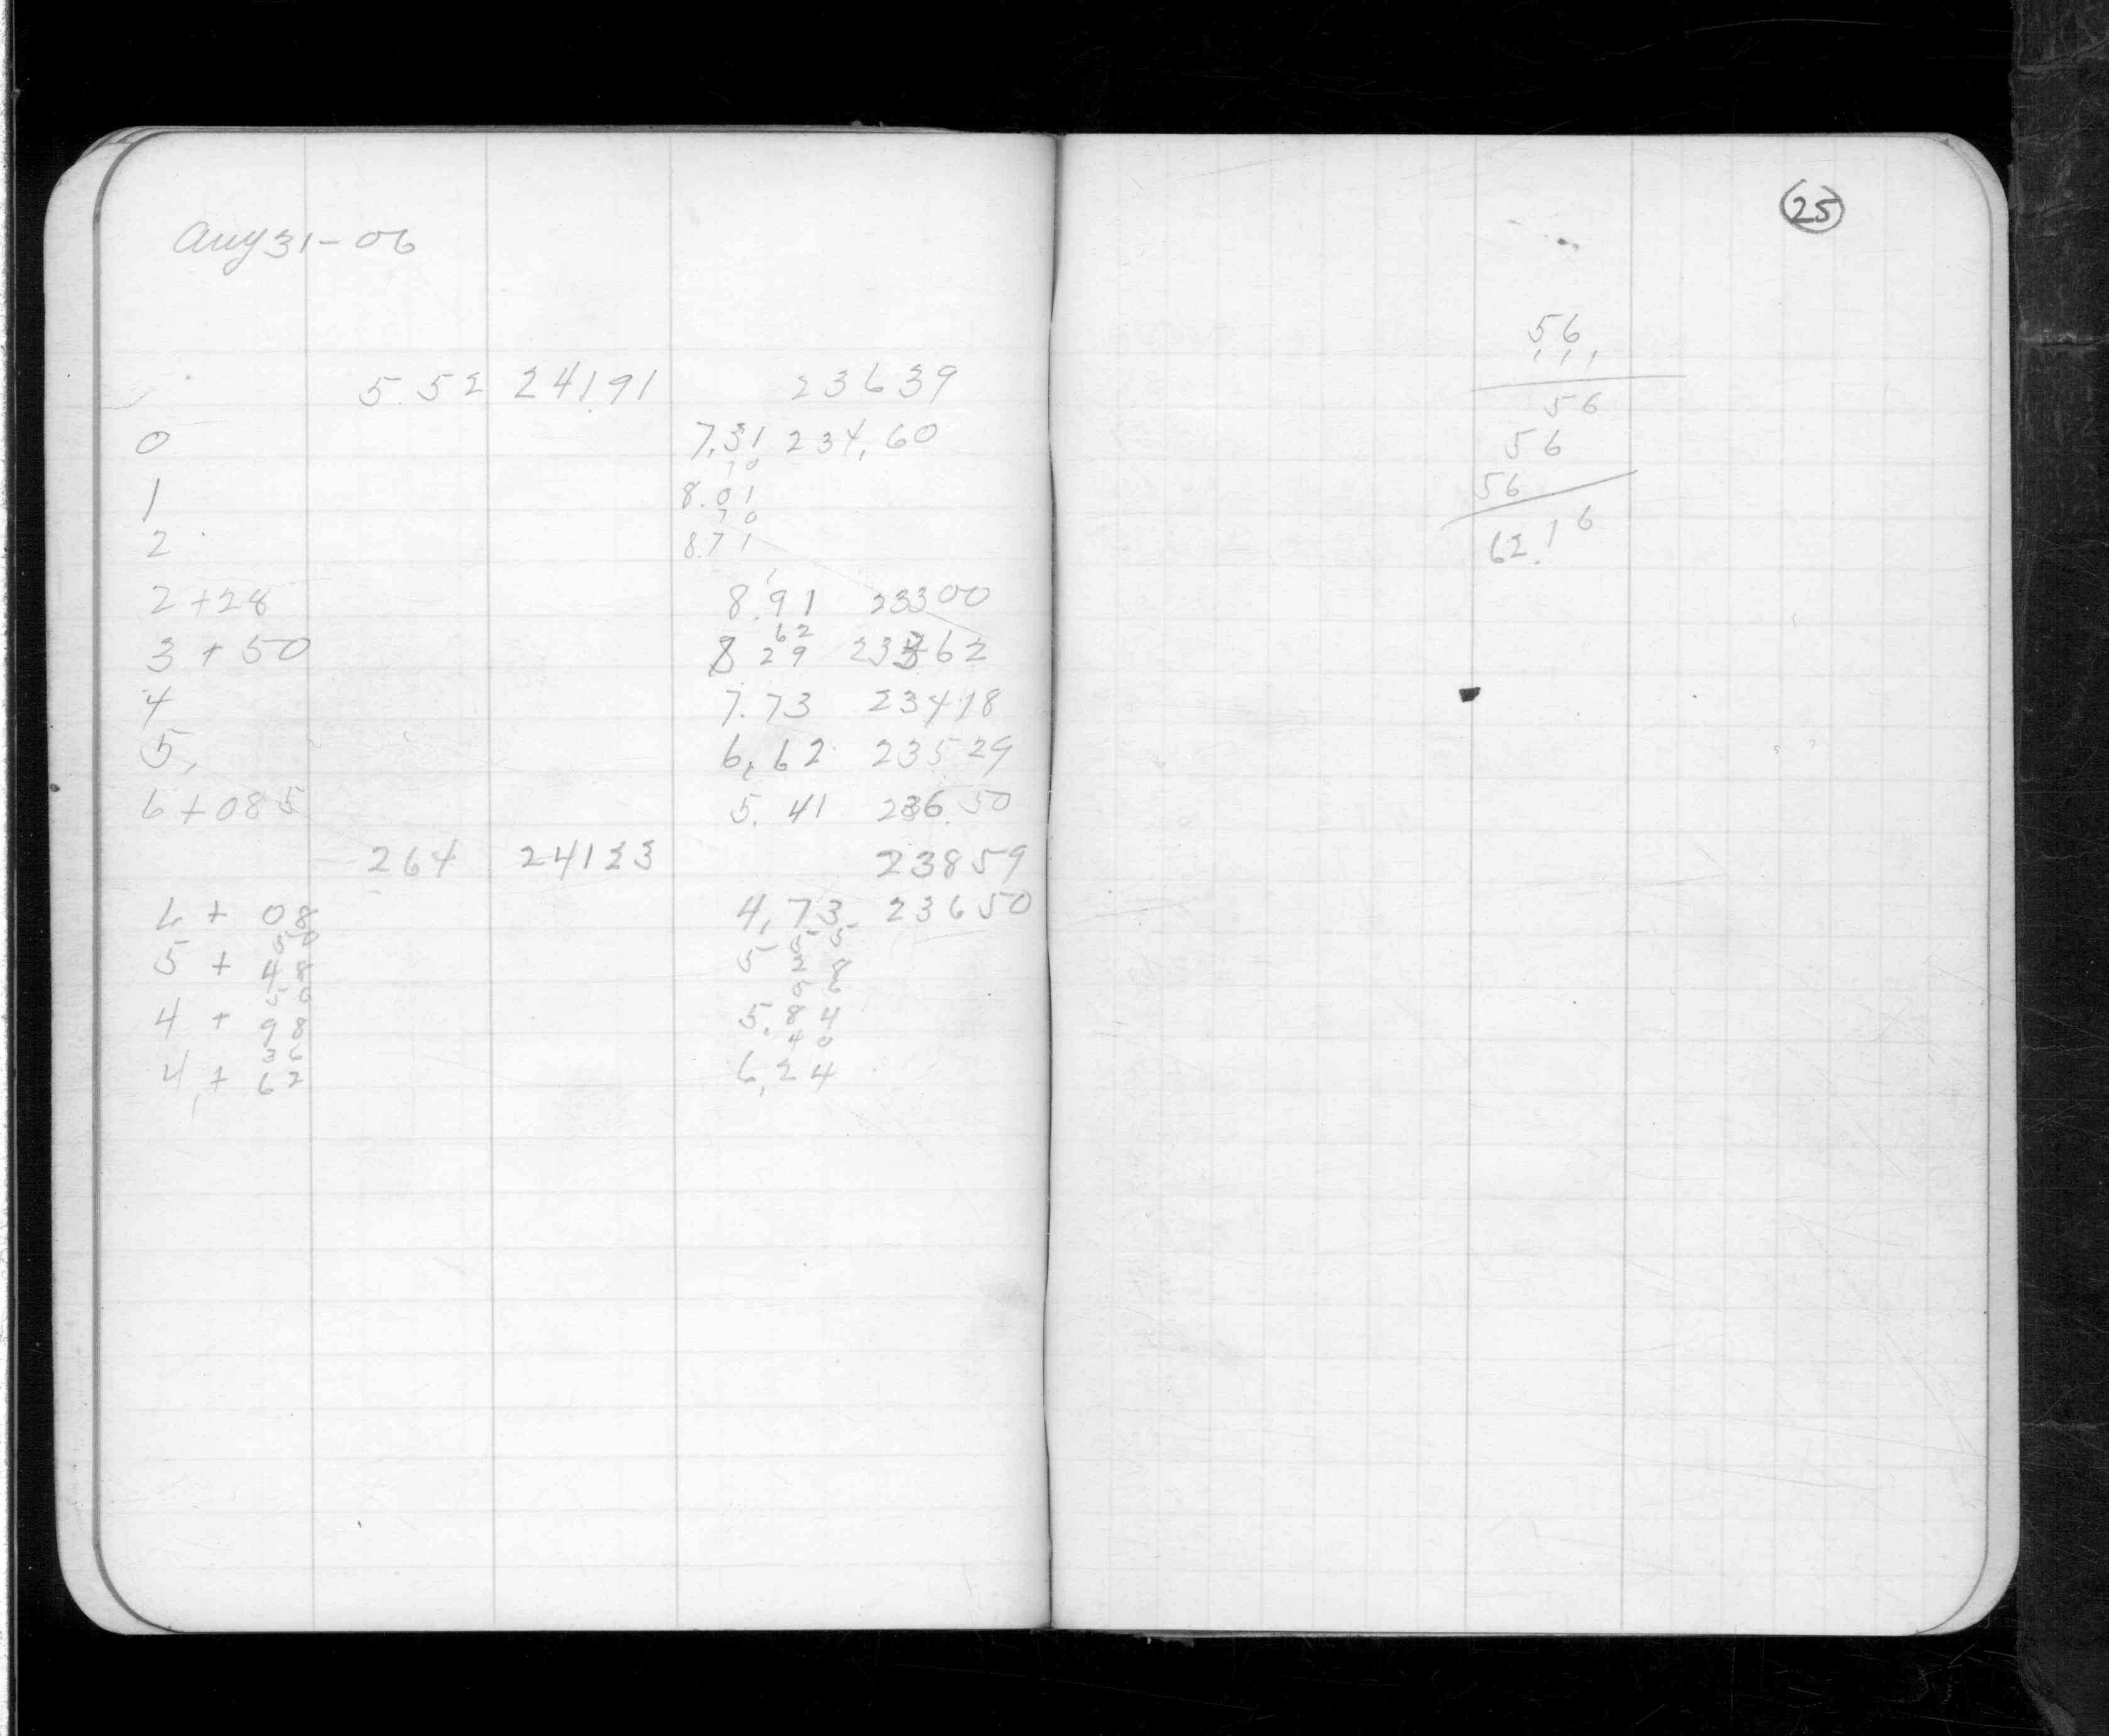 Aug 31-06
5.52 24191 23639
0 7.31 234.60
70
1 8.01
70
2 8.71
2+28 8.91 23300
62
3+50 8 29 23362
4 7.73 23418
5, 6,62 23529
6+085 5.41 236.50
264 24123 23859
6+08 4,73 23650
50 55
5+48 5 28
50 56
4+98 5.84
36 40
4+62 6,24
25
56
111
56
56
56
62.16